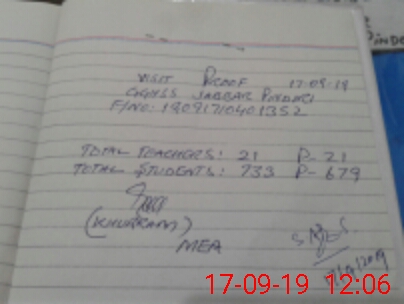 VISIT PROOF 17-09-19
GGHSS JABBAR
F/NO: 19091710401352
TOTAL TEACHERS: 21 P- 21
TOTAL STUDENTS: 733 P- 679
(KHURRAM)
MEA
17-09-19 12:06